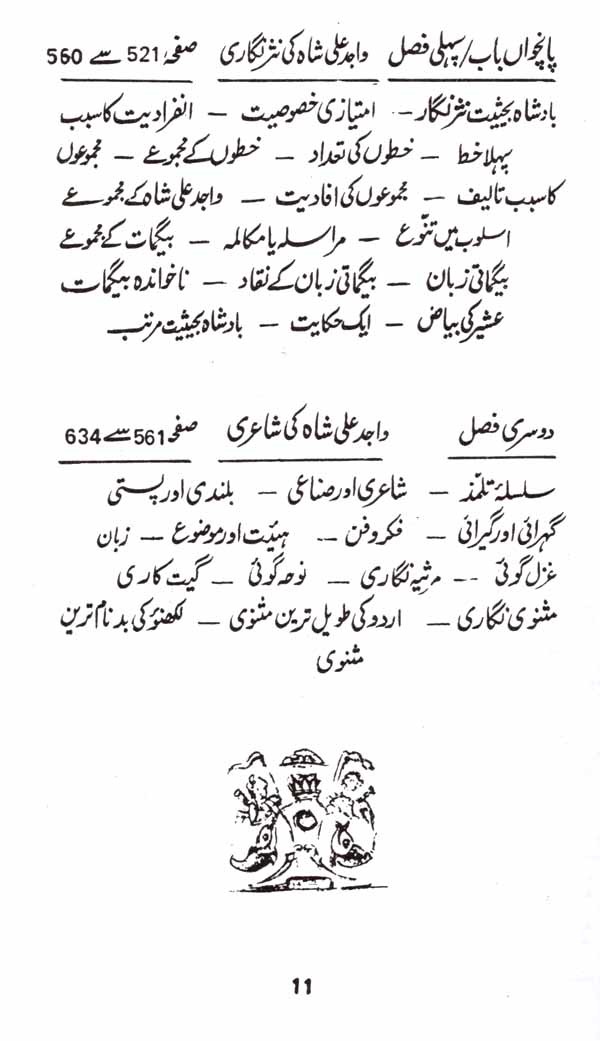 پانچواں باب/پہلی فصل واجد علی شاہ کی نثر نگاری صفحۂ 521 سے 560
بادشاہ بحیثیت نثر نگار — امتیازی خصوصیت — انفرادیت کا سبب
پہلا خط — خطوں کی تعداد — خطوں کے مجموعے — مجموعوں
کا سبب تالیف — مجموعوں کی افادیت — واجد علی شاہ کے مجموعے
اسلوب میں تنوّع — مراسلہ یا مکالمہ — بیگمات کے مجموعے
بیگماتی زبان — بیگماتی زبان کے نقاد — ناخواندہ بیگمات
عشیر کی بیاض — ایک حکایت — بادشاہ بحیثیت مرتب
دوسری فصل واجد علی شاہ کی شاعری صفحہ 561 سے 634
سلسلۂ تلمّذ — شاعری اور صناعی — بلندی اور پستی
گہرائی اور گیرائی — فکر و فن — ہیئت اور موضوع — زبان
غزل گوئی -- مرثیہ نگاری — نوحہ گوئی — گیت کاری
مثنوی نگاری — اردو کی طویل ترین مثنوی — لکھنؤ کی بدنام ترین
مثنوی
11